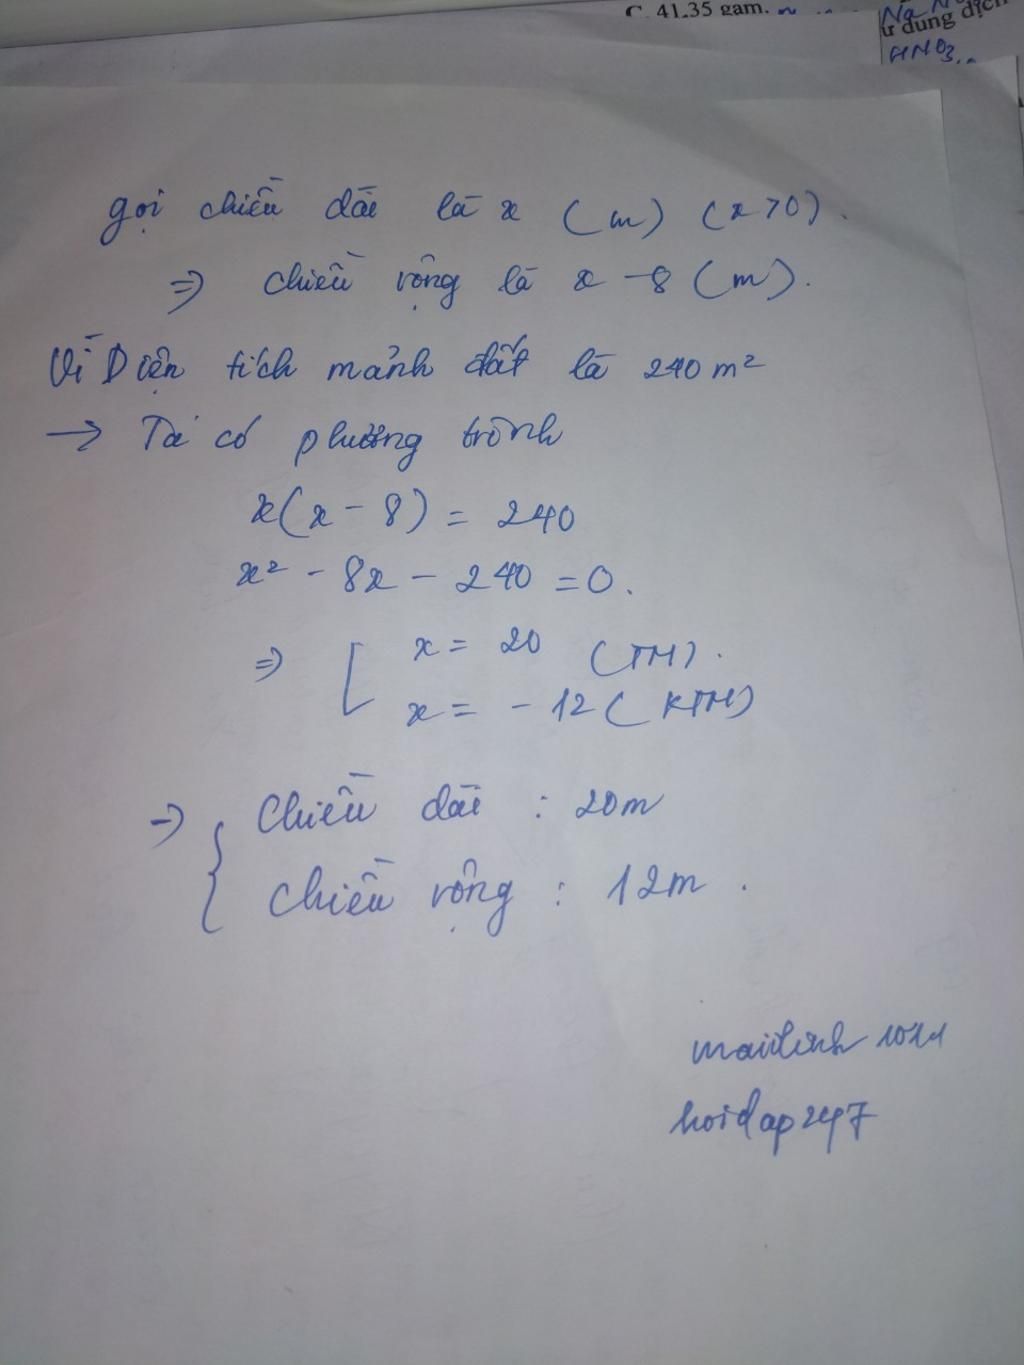 C. 41,35 gam.
Na N
ử dụng dịch
HNO3
gọi chiều dài là x (m) (x>0).
=> chiều rộng là x - 8 (m).
Vì Diện tích mảnh đất là 240 m²
→ Ta có phương trình
x(x - 8) = 240
x² - 8x - 240 = 0.
=> [ x = 20 (TM).
x = - 12 (KTM)
→ { Chiều dài : 20m
Chiều rộng : 12m.
mailinh
hoidap247